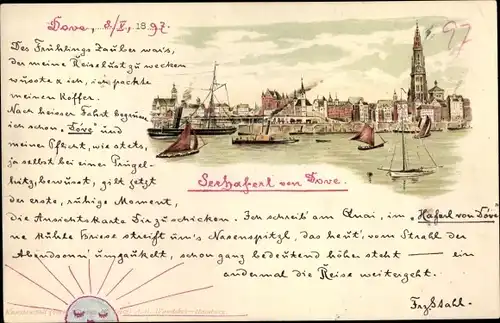 Dove, 8/V, 1897.
97
Des Frühlings Zauber war's,
der meine Reiselust zu wecken
wüsste & ich, ich packte
meinen Koffer.
Nach heisser Fahrt begrüsse
ich schon „Dove" und
meiner Pflicht, wie stets,
ja selbst bei einer Prügel-
hitz, bewusst, gilt jetzt
der erste, ruhige Moment,
Seehaferl von Dove.
die Ansichtskarte Dir zu schicken. Ich schreib' am Quai, im „Haferl von Dove"
ne kühle Briese streift um's Nasenspitzl, das heut', vom Strahl der
Abendsonn' umgaukelt, schon ganz bedeutend höher steht — ein
andermal die Reise weitergeht.